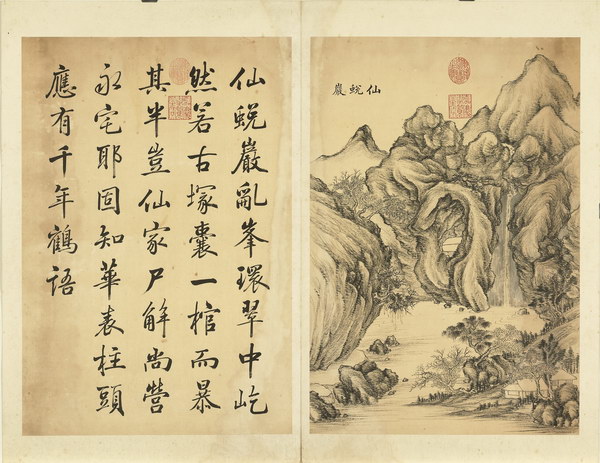 仙蛻巖
仙蛻巖亂峯環翠中屹
然若古塚囊一棺而暴
其半豈仙家尸解尚營
永宅耶固知華表柱頭
應有千年鶴語